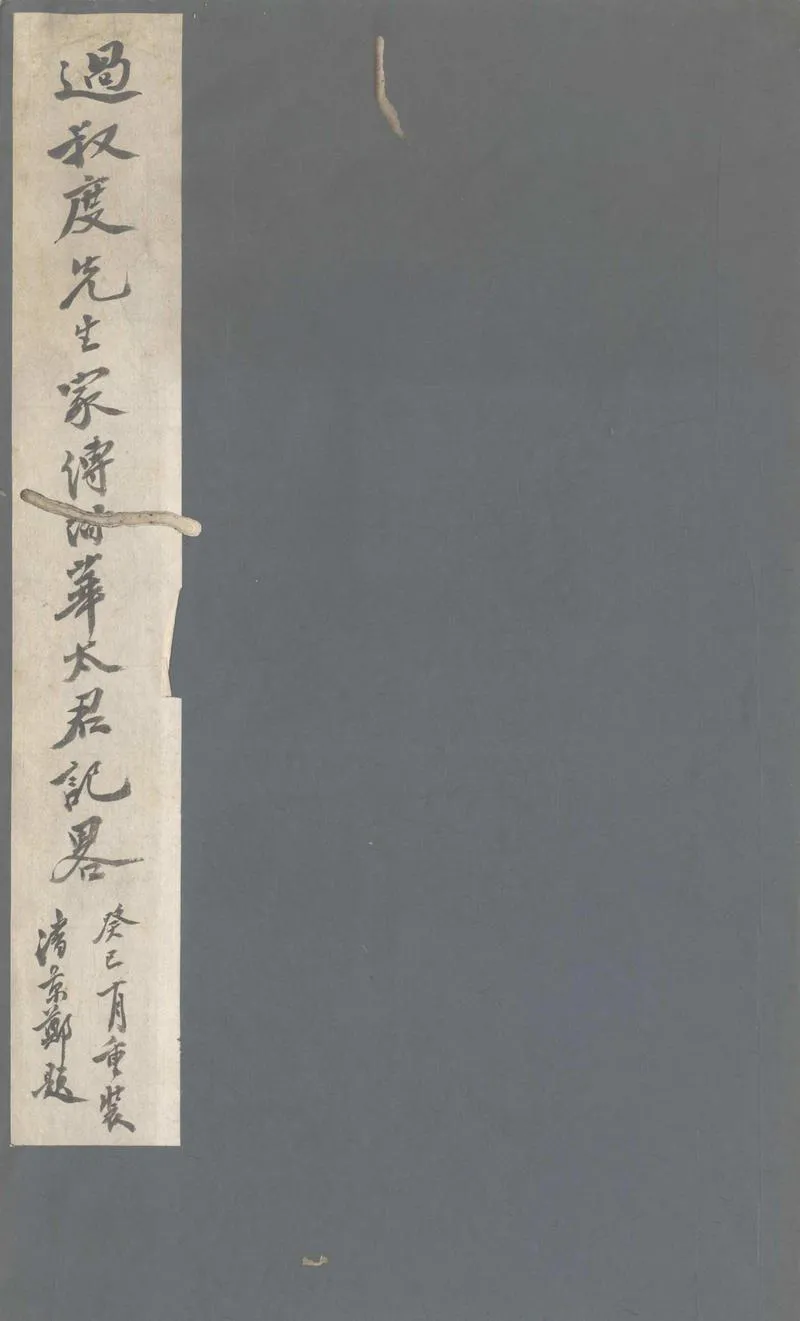 過叔度先生家傳 華太君記畧
癸巳 月重裝
潘景鄭題